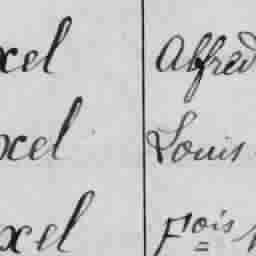 xel Alfred
xel Louis
xel Fois